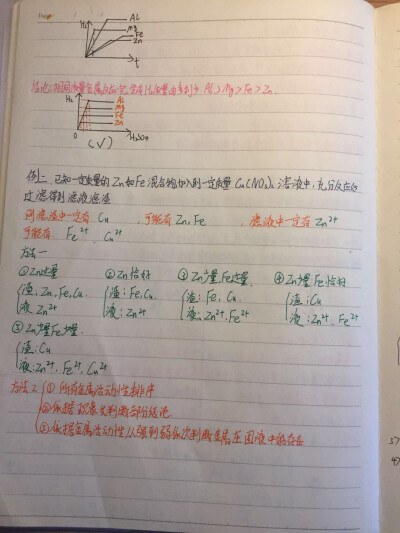 H₂
Al
Mg
Fe
Zn
t
结论:相同质量金属反应完,生成H₂质量由多到少 Al>Mg>Fe>Zn.
H₂
Al
Mg
Fe
Zn
0
H₂SO₄
(√)
例二. 已知一定质量的Zn和Fe混合物加入到一定质量Cu(NO₃)₂溶液中,充分反应后
过滤得到滤液滤渣
问滤渣中一定有 Cu ,可能有 Zn, Fe ,滤液中一定有 Zn²⁺
可能有 Fe²⁺ Cu²⁺
方法一
①Zn过量 ②Zn恰好 ③Zn少量,Fe过量. ④Zn少量,Fe恰好
渣:Zn, Fe, Cu. 渣:Fe, Cu 渣:Fe, Cu 渣:Cu
液:Zn²⁺ 液:Zn²⁺ 液:Zn²⁺, Fe²⁺ 液:Zn²⁺, Fe²⁺
⑤Zn少量Fe少量.
渣:Cu
液:Zn²⁺, Fe²⁺, Cu²⁺
方法2 ①所有金属活动性排序
②依据 判断部分结论
③依据金属活动性从强到弱依次判断金属在 中能存在
37